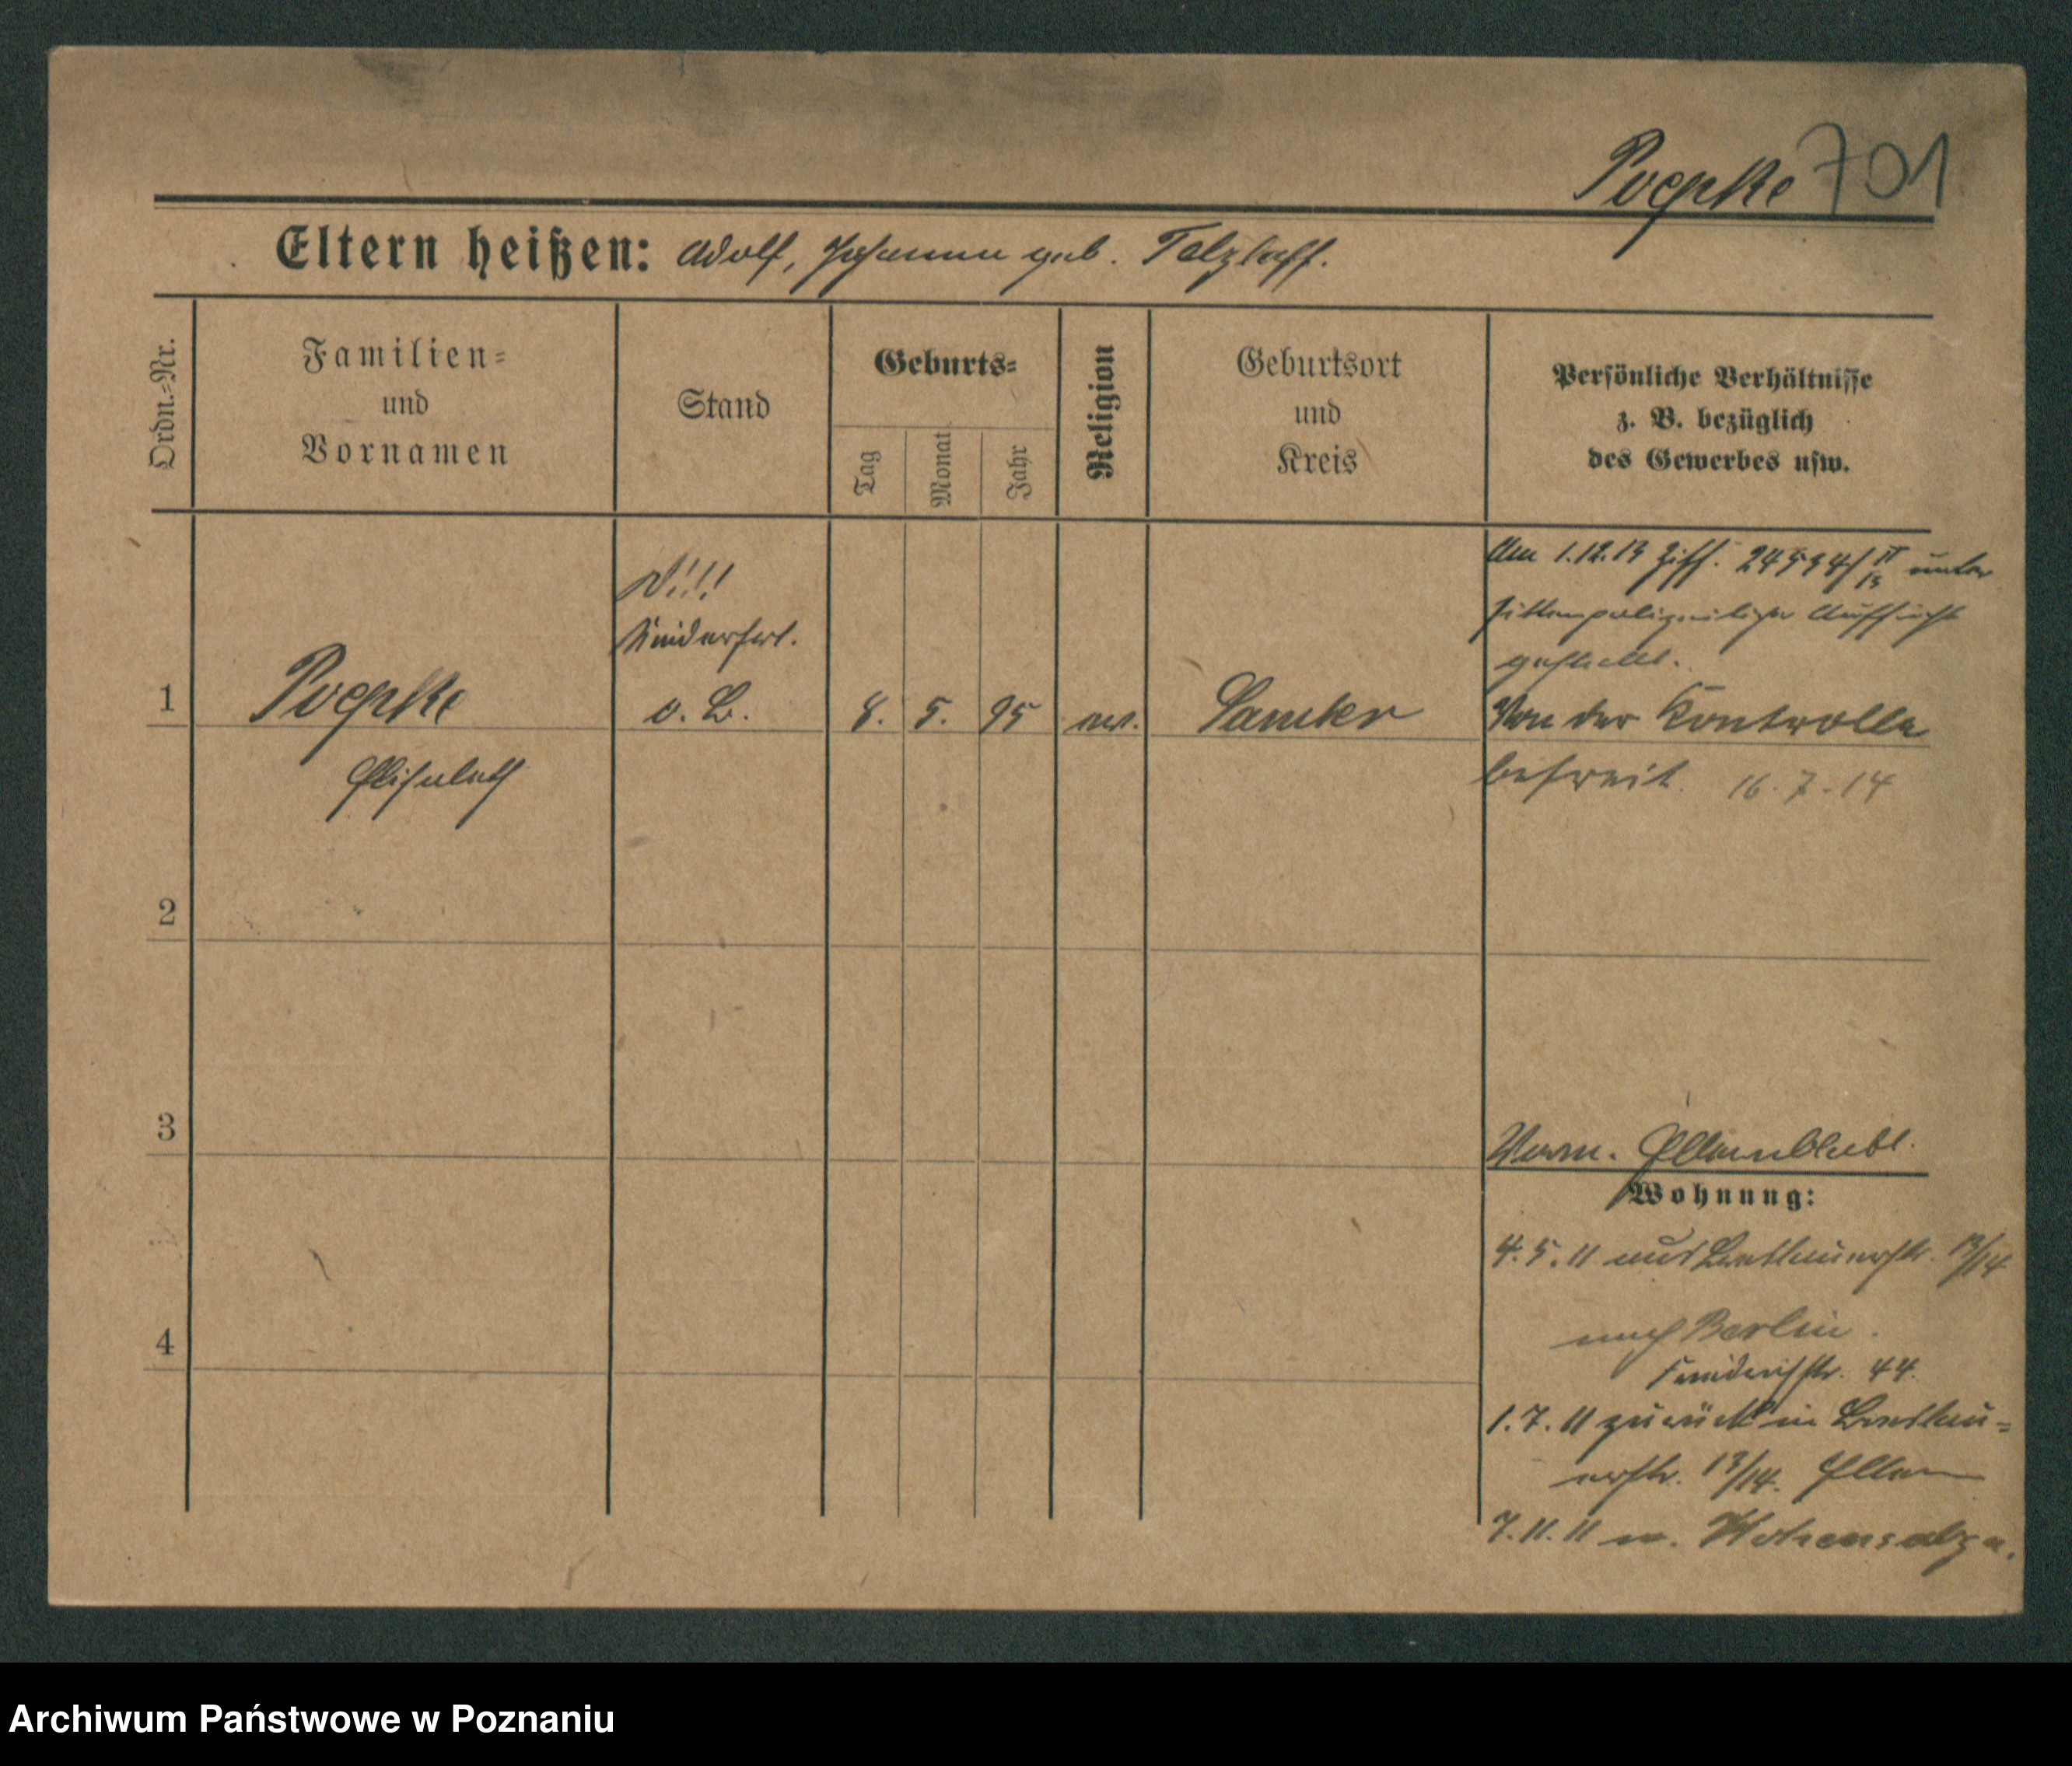 Poepke 701
Eltern heißen: Adolf, Johanna geb. Tetzlaff.
Ordn.-Nr.
Familien-
und
Vornamen
Stand
Geburts-
Tag
Monat
Jahr
Religion
Geburtsort
und
Kreis
Persönliche Verhältnisse
z. B. bezüglich
des Gewerbes usw.
1
Poepke
Elisabeth
!!!
Kinderfrl.
o. B.
8. 5. 95
ev.
Samter
Am 1.12.13 Ziff. 24594/ II 13 unter
sittenpolizeiliche Aufsicht
gestellt.
Von der Kontrolle
befreit. 16.7.14
2
3
4
Wohnung:
4.5.11 aus Breslauerstr. 13/14
nach Berlin.
Friedrichstr. 44.
1.7.11 zurück in Breslau-
erstr. 13/14. Eltern
7.11.11 n. Hohensalza.
Archiwum Państwowe w Poznaniu